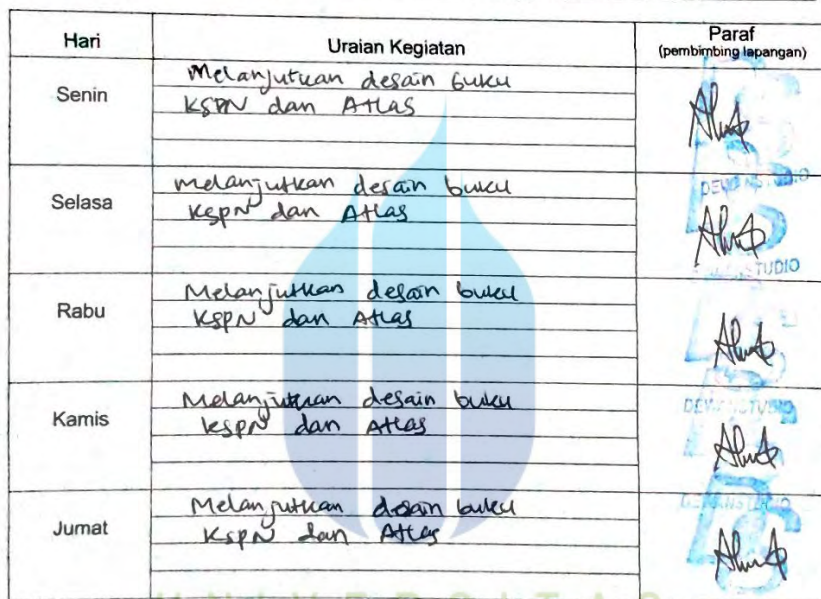 Hari Uraian Kegiatan Paraf
(pembimbing lapangan)
Senin
Melanjutkan desain buku
KSPN dan Atlas
DEWANSTUDIO
Selasa
Melanjutkan desain buku
KSPN dan Atlas
Rabu
Melanjutkan desain buku
KSPN dan Atlas
Kamis
Melanjutkan desain buku
KSPN dan Atlas
DEWANSTUDIO
Jumat
Melanjutkan desain buku
KSPN dan Atlas
DEWANSTUDIO